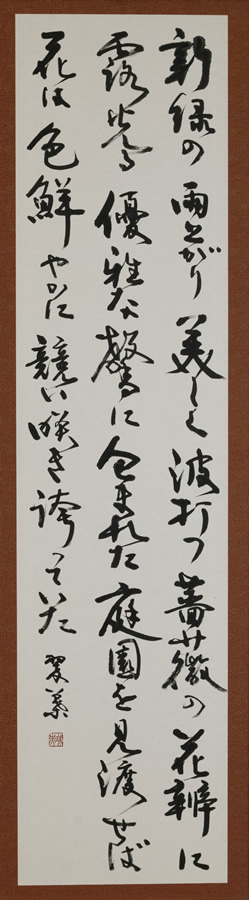 新緑の雨上がり美しく波打つ薔薇の花瓣に
露光る優雅な馨に包まれた庭園を見渡せば
花は色鮮やかに競い咲き誇っていた
翠葉